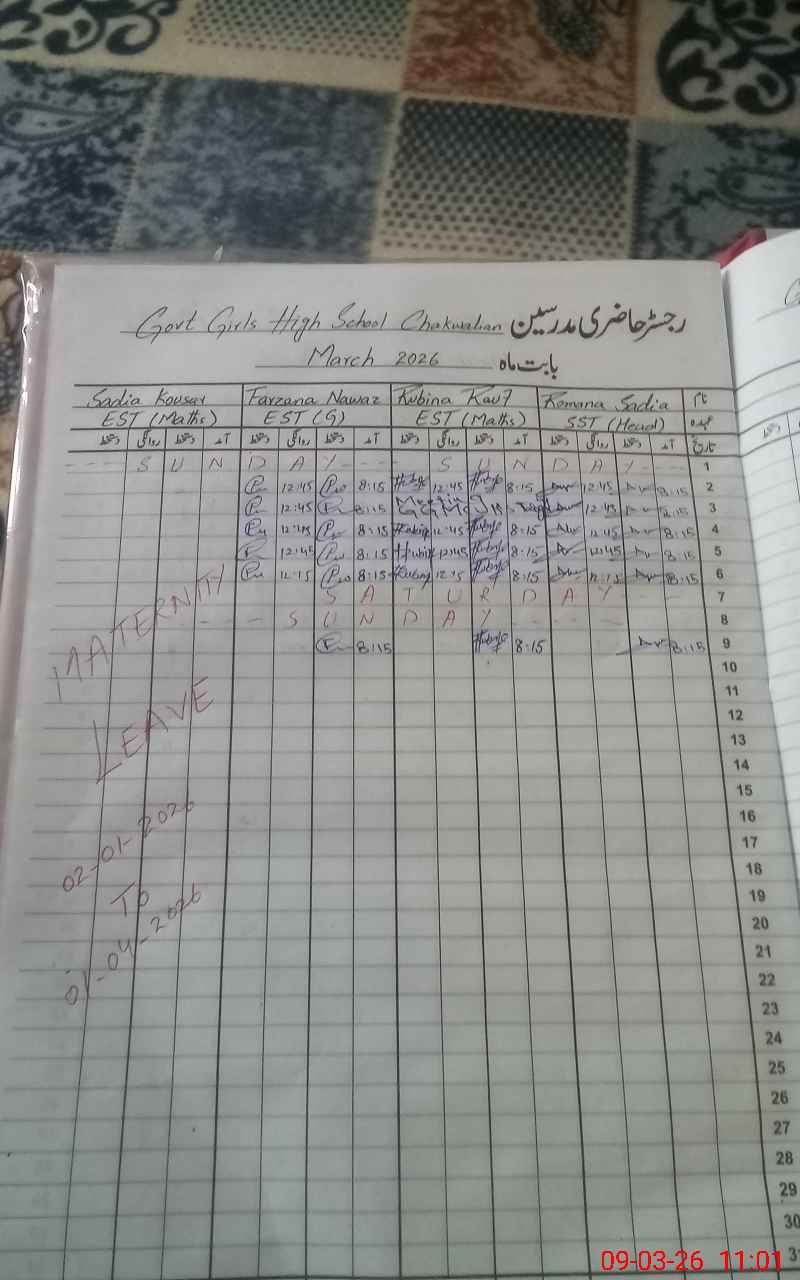 Govt Girls High School Chakwalian رجسٹر حاضری مدرسین
March 2026 بابت ماہ
Sadia Kousar Farzana Nawaz Rubina Rauf Romana Sadia نام
EST (Maths) EST (G) EST (Maths) SST (Head) عہدہ
دستخط روانگی دستخط آمد دستخط روانگی دستخط آمد دستخط روانگی دستخط آمد دستخط روانگی دستخط آمد تاریخ
S U N D A Y S U N D A Y 1
12:45 8:15 12:45 8:15 12:45 8:15 2
12:45 8:15 12:45 8:15 3
12:45 8:15 12:45 8:15 12:45 8:15 4
12:45 8:15 12:45 8:15 12:45 8:15 5
12:15 8:15 12:15 8:15 12:15 8:15 6
S A T U R D A Y 7
S U N D A Y 8
8:15 8:15 8:15 9
10
11
12
13
14
15
16
17
18
19
20
21
22
23
24
25
26
27
28
29
30
MATERNITY
LEAVE
02-01-2026
To
01-04-2026
09-03-26 11:01